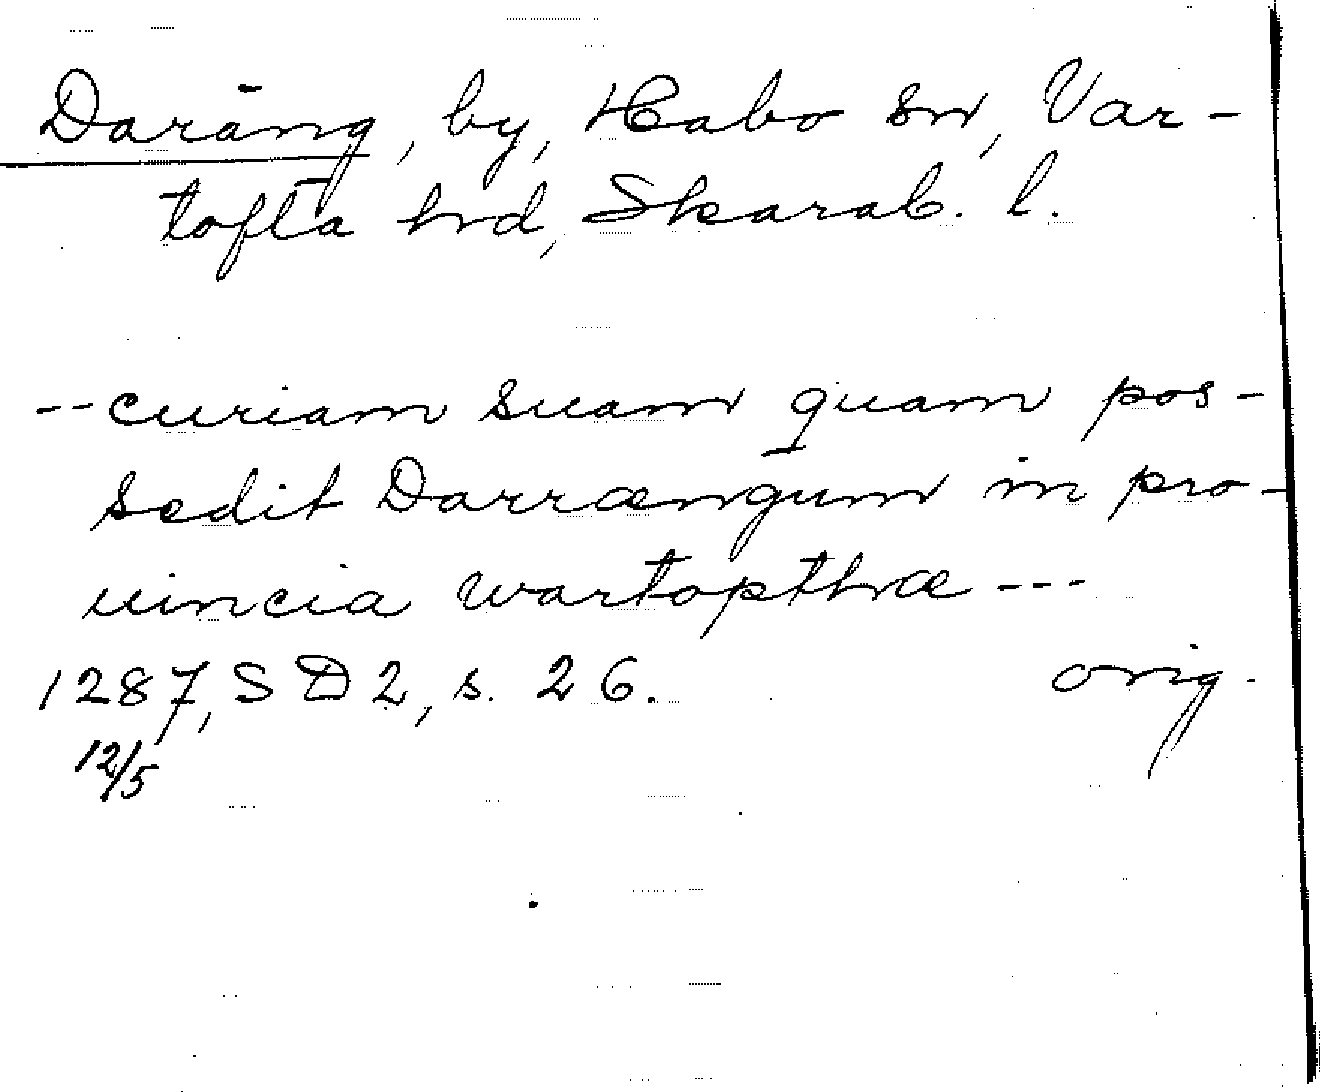 Daräng, by, Habo sn, Var-
tofta hrd, Skarab. l.
-- curiam suam quam pos-
sedit Darrængum in pro-
uincia wartopthæ ---
1287, SD 2, s. 26. orig.
12/5